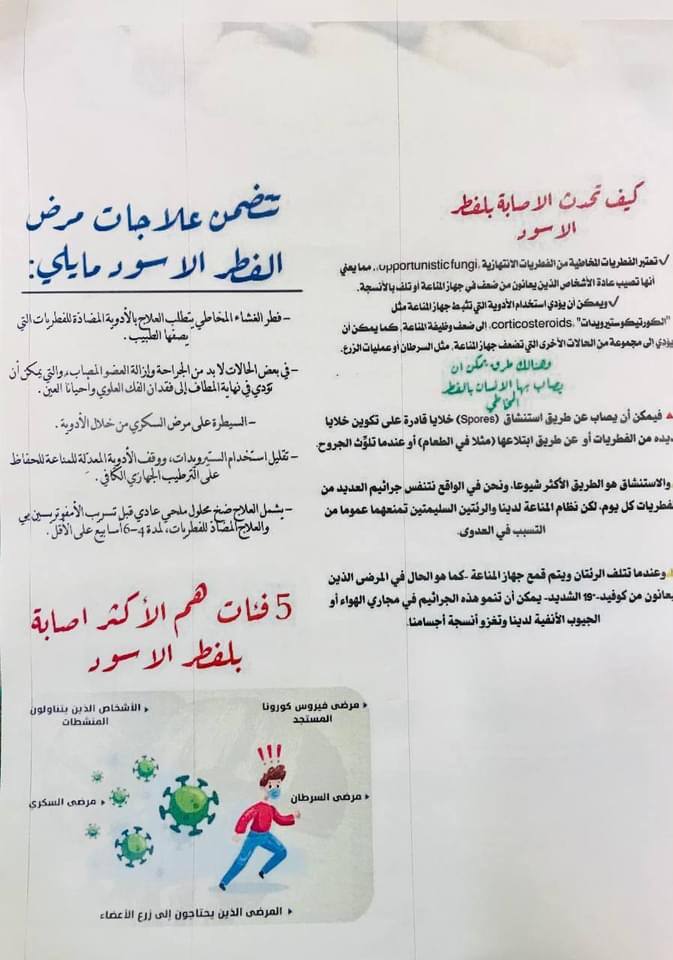 كيف تحدث الاصابة بلفطر
الاسود
✓ تعتبر الفطريات المخاطية من الفطريات الانتهازية ,opportunistic fungi، مما يعني
أنها تصيب عادة الأشخاص الذين يعانون من ضعف في جهاز المناعة أو تلف بالأنسجة.
✓ ويمكن أن يؤدي استخدام الأدوية التي تثبط جهاز المناعة مثل
"الكورتيكوستيرويدات" ,corticosteroids، إلى ضعف وظيفة المناعة، كما يمكن أن
يؤدي إلى مجموعة من الحالات الأخرى التي تضعف جهاز المناعة، مثل السرطان أو عمليات الزرع.
وهنالك طرق يمكن ان
يصاب بها الانسان بالفطر
المخاطي
فيمكن أن يصاب عن طريق استنشاق (Spores) خلايا قادرة على تكوين خلايا
جديده من الفطريات أو عن طريق ابتلاعها (مثلا في الطعام) أو عندما تلوّث الجروح.
والاستنشاق هو الطريق الأكثر شيوعا، ونحن في الواقع نتنفس جراثيم العديد من
الفطريات كل يوم، لكن نظام المناعة لدينا والرئتين السليمتين تمنعهما عموما من
التسبب في العدوى.
وعندما تتلف الرئتان ويتم قمع جهاز المناعة -كما هو الحال في المرضى الذين
يعانون من كوفيد-19 الشديد- يمكن أن تنمو هذه الجراثيم في مجاري الهواء أو
الجيوب الأنفية لدينا وتغزو أنسجة أجسامنا.
تتضمن علاجات مرض
الفطر الاسود مايلي:
- فطر الغشاء المخاطي يتطلب العلاج بالأدوية المضادة للفطريات التي
يصفها الطبيب.
- في بعض الحالات لا بد من الجراحة وإزالة العضو المصاب، والتي يمكن أن
تؤدي في نهاية المطاف إلى فقدان الفك العلوي وأحيانا العين.
- السيطرة على مرض السكري من خلال الأدوية.
- تقليل استخدام الستيرويدات، ووقف الأدوية المعدلة للمناعة للحفاظ
على الترطيب الجهازي الكافي.
- يشمل العلاج ضخ محلول ملحي عادي قبل تسريب الأمفوتريسين بي
والعلاج المضاد للفطريات، لمدة 4-6 أسابيع على الأقل.
5 فئات هم الأكثر اصابة
بلفطر الاسود
مرضى فيروس كورونا
المستجد
الأشخاص الذين يتناولون
المنشطات
!!!
مرضى السرطان
مرضى السكري
المرضى الذين يحتاجون إلى زرع الأعضاء